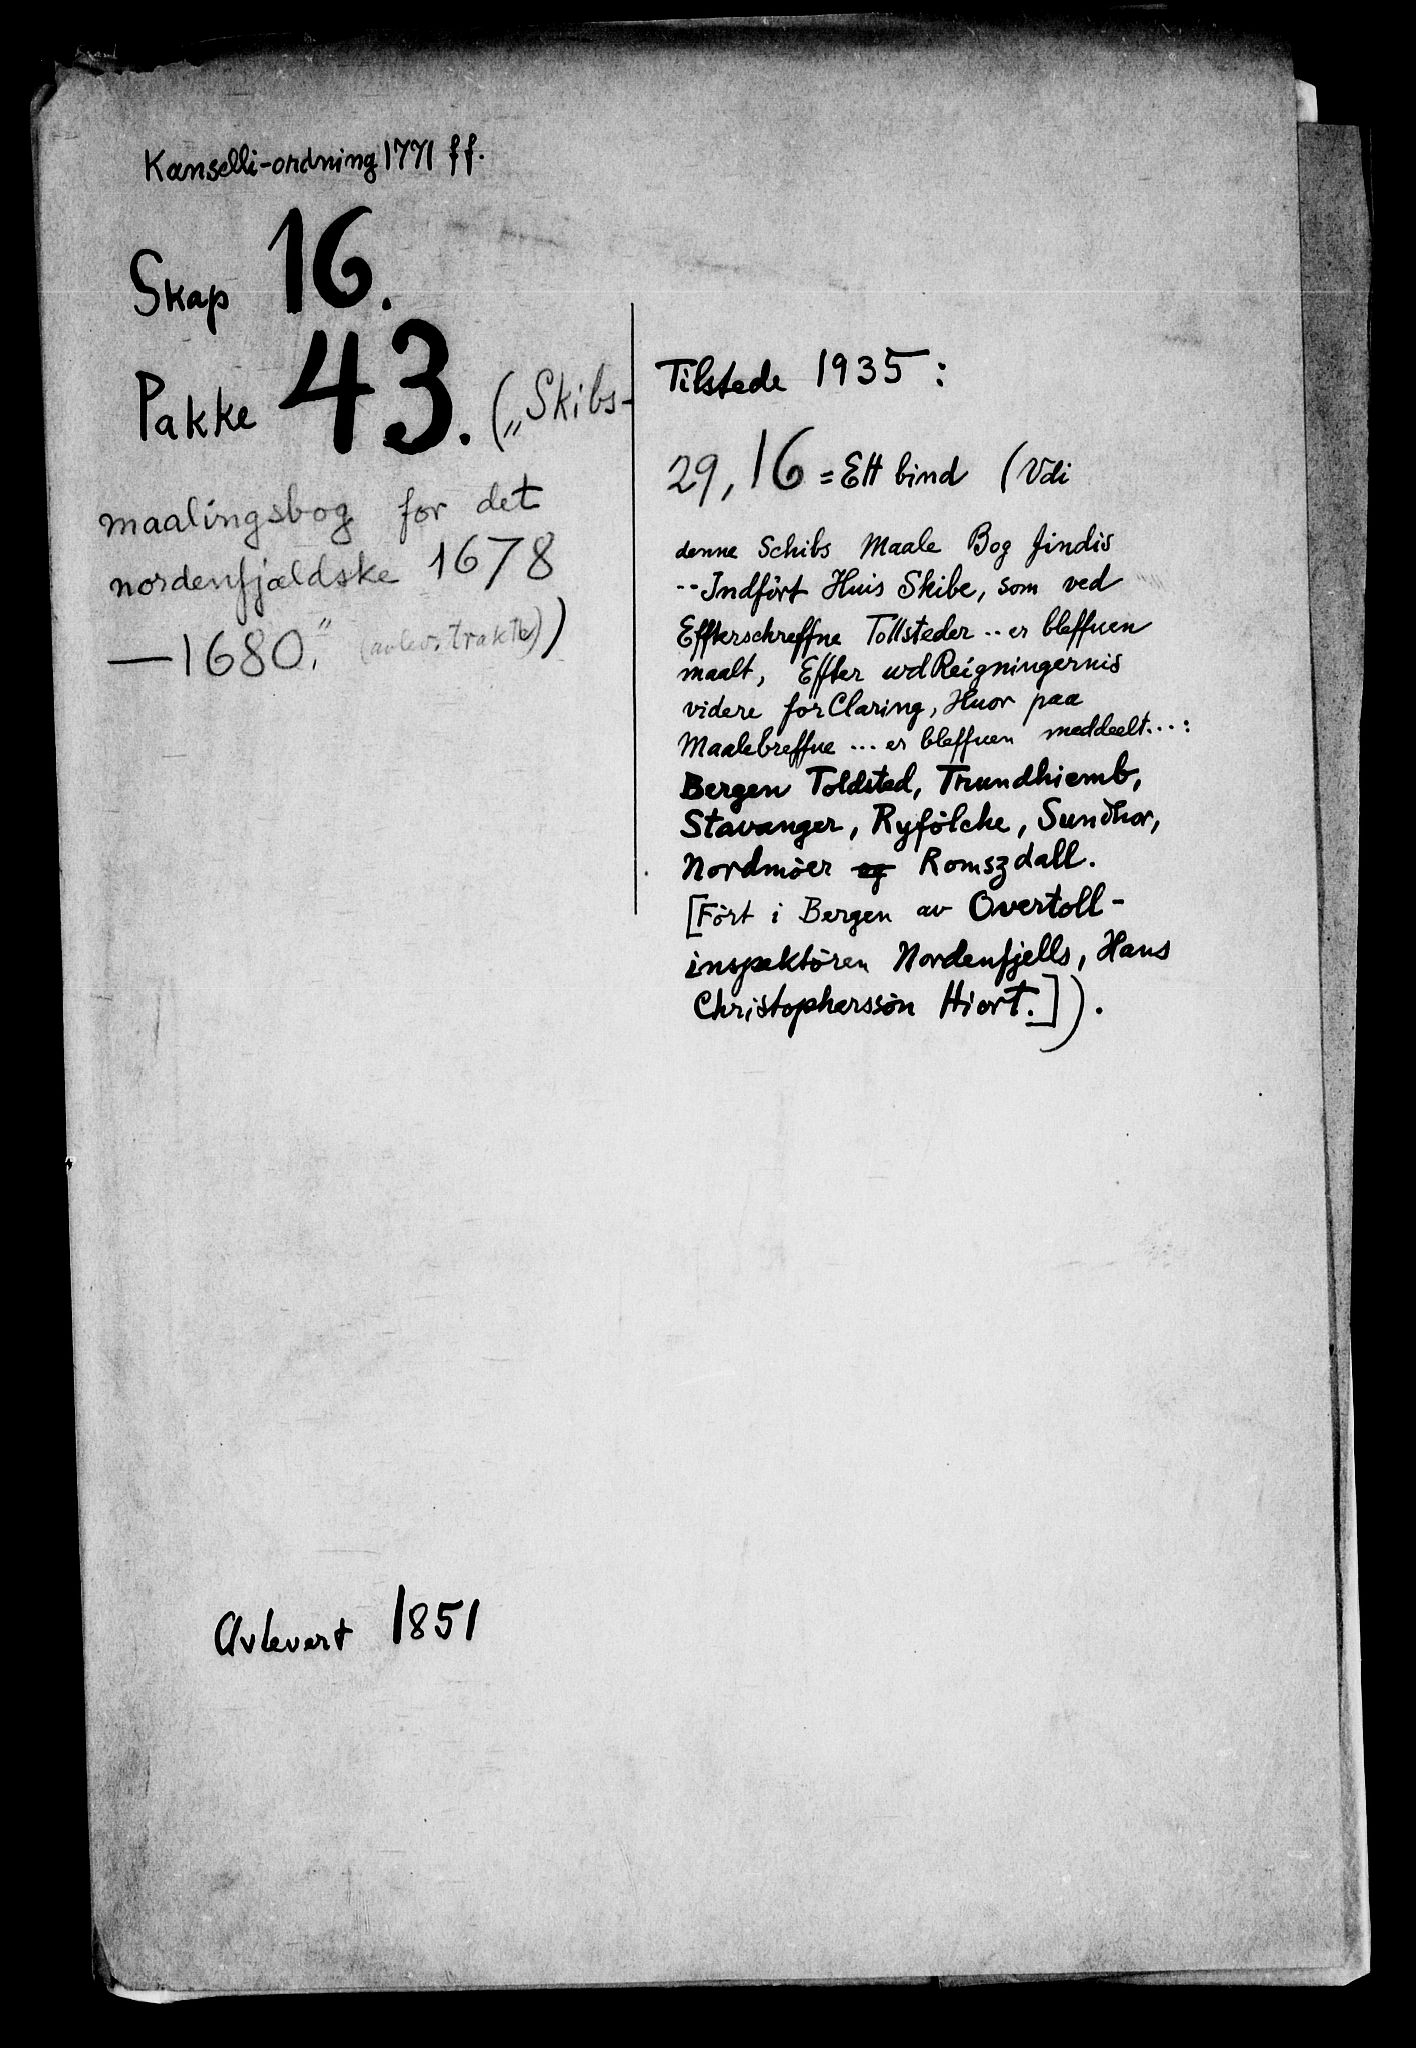 Kanselli-ordning 1771 ff.
Skap 16.
Pakke 43. („Skibs-
maalingsbog for det
nordenfjældske 1678
—1680." (avlev.trakt))
Tilstede 1935:
29,16 = Ett bind (Vdi
denne Schibs Maale Bog findis
.. Indført Huis Skibe, som ved
Effterschreffne Tollsteder .. er bleffuen
maalt, Effter udReigningernis
videre forClaring, Huor paa
Maalebreffue ... er bleffuen meddeelt...:
Bergen Toldsted, Trundhiemb,
Stavanger, Ryfølcke, Sundhor,
Nordmøer og Romszdall.
[Ført i Bergen av Overtoll-
inspektøren Nordenfjells, Hans
Christopherssøn Hiort.]).
Avlevert 1851